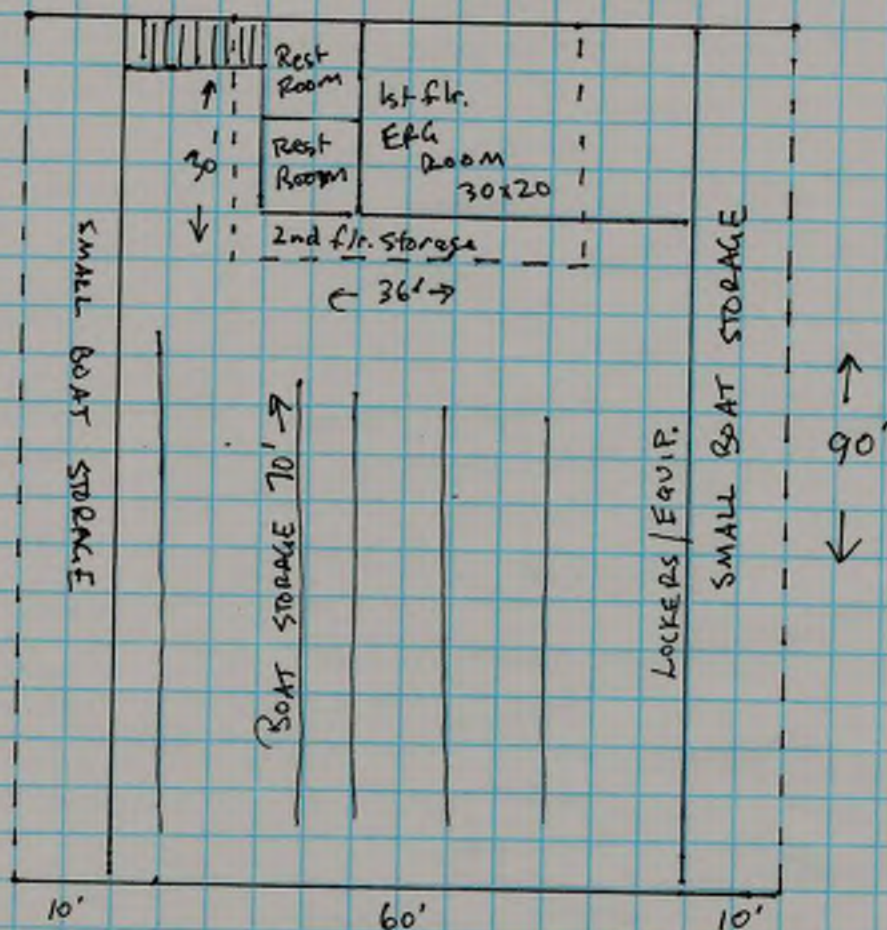 Rest
Room
1st flr.
ERG
Room
30x20
Rest
Room
30'
2nd flr. storage
← 36' →
SMALL BOAT STORAGE
BOAT STORAGE 70' →
LOCKERS/EQUIP.
SMALL BOAT STORAGE
90'
10'
60'
10'